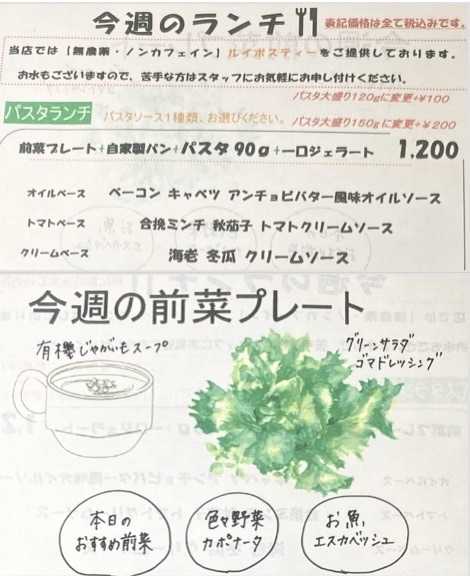 今週のランチ 表記価格は全て税込みです。
当店では(無農薬・ノンカフェイン)ルイボスティーをご提供しております。
お水もございますので、苦手な方はスタッフにお気軽にお申し付けください。
パスタ大盛り120gに変更+¥100
パスタランチ パスタソース1種類、お選びください。 パスタ大盛り150gに変更+¥200
前菜プレート+自家製パン+パスタ90g+一口ジェラート 1.200
オイルベース ベーコン キャベツ アンチョビバター風味オイルソース
トマトベース 合挽ミンチ 秋茄子 トマトクリームソース
クリームベース 海老 冬瓜 クリームソース
今週の前菜プレート
有機じゃがいもスープ
グリーンサラダ
ゴマドレッシング
本日の
おすすめ前菜
色々野菜
カポナータ
お魚
エスカベッシュ